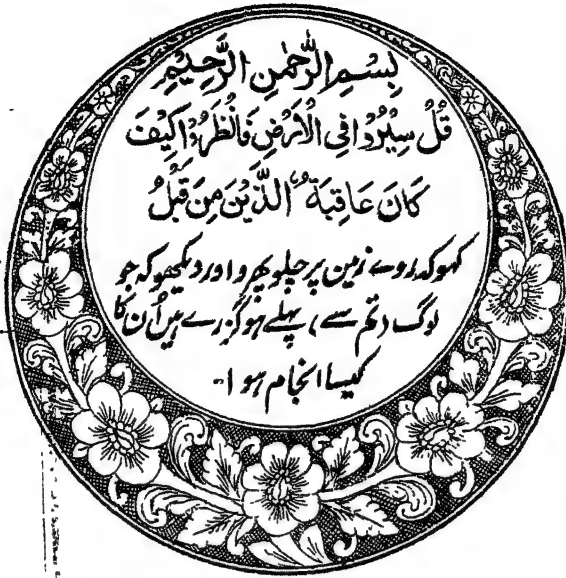 بِسْمِ الرَّحْمٰنِ الرَّحِيْمِ
قُلْ سِيْرُوْا فِي الْاَرْضِ فَانْظُرُوْا كَيْفَ
كَانَ عَاقِبَةُ الَّذِيْنَ مِنْ قَبْلُ
کہو کہ روے زمین پر چلو پھرو اور دیکھو کہ جو
لوگ (تم سے) پہلے ہو گزرے ہیں اُن کا
کیسا انجام ہوا۔